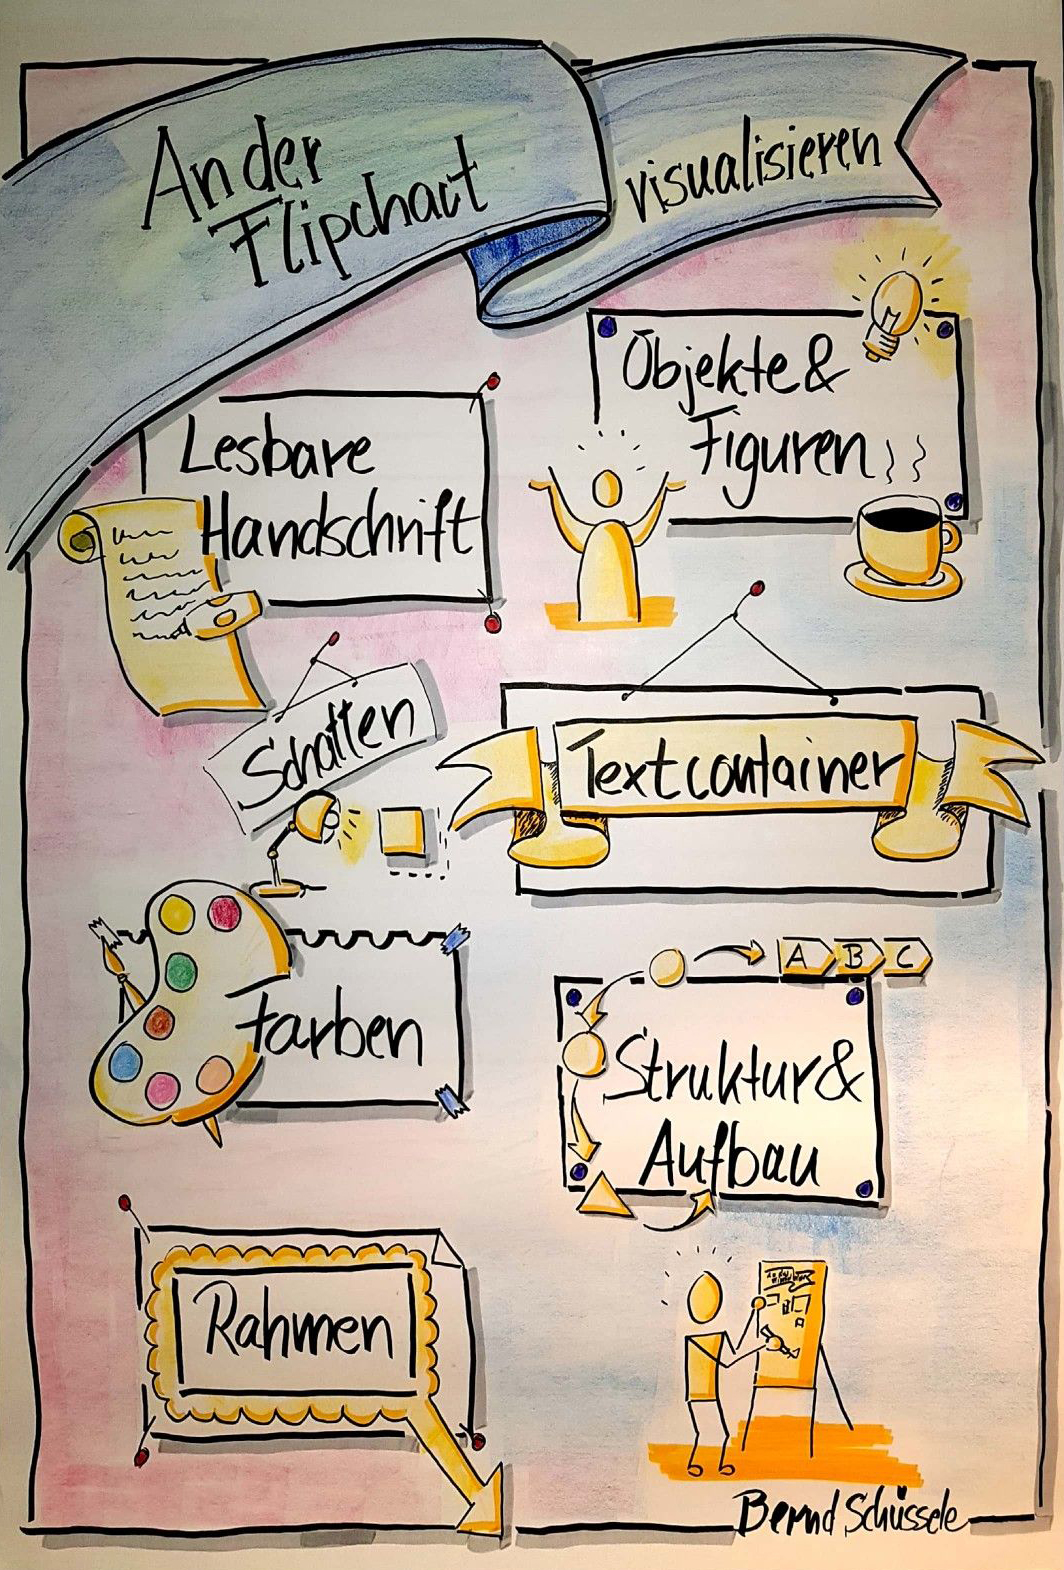 An der
Flipchart
visualisieren
Objekte &
Figuren
Lesbare
Handschrift
Schatten
Textcontainer
Farben
A B C
Struktur &
Aufbau
Rahmen
Bernd Schüssele